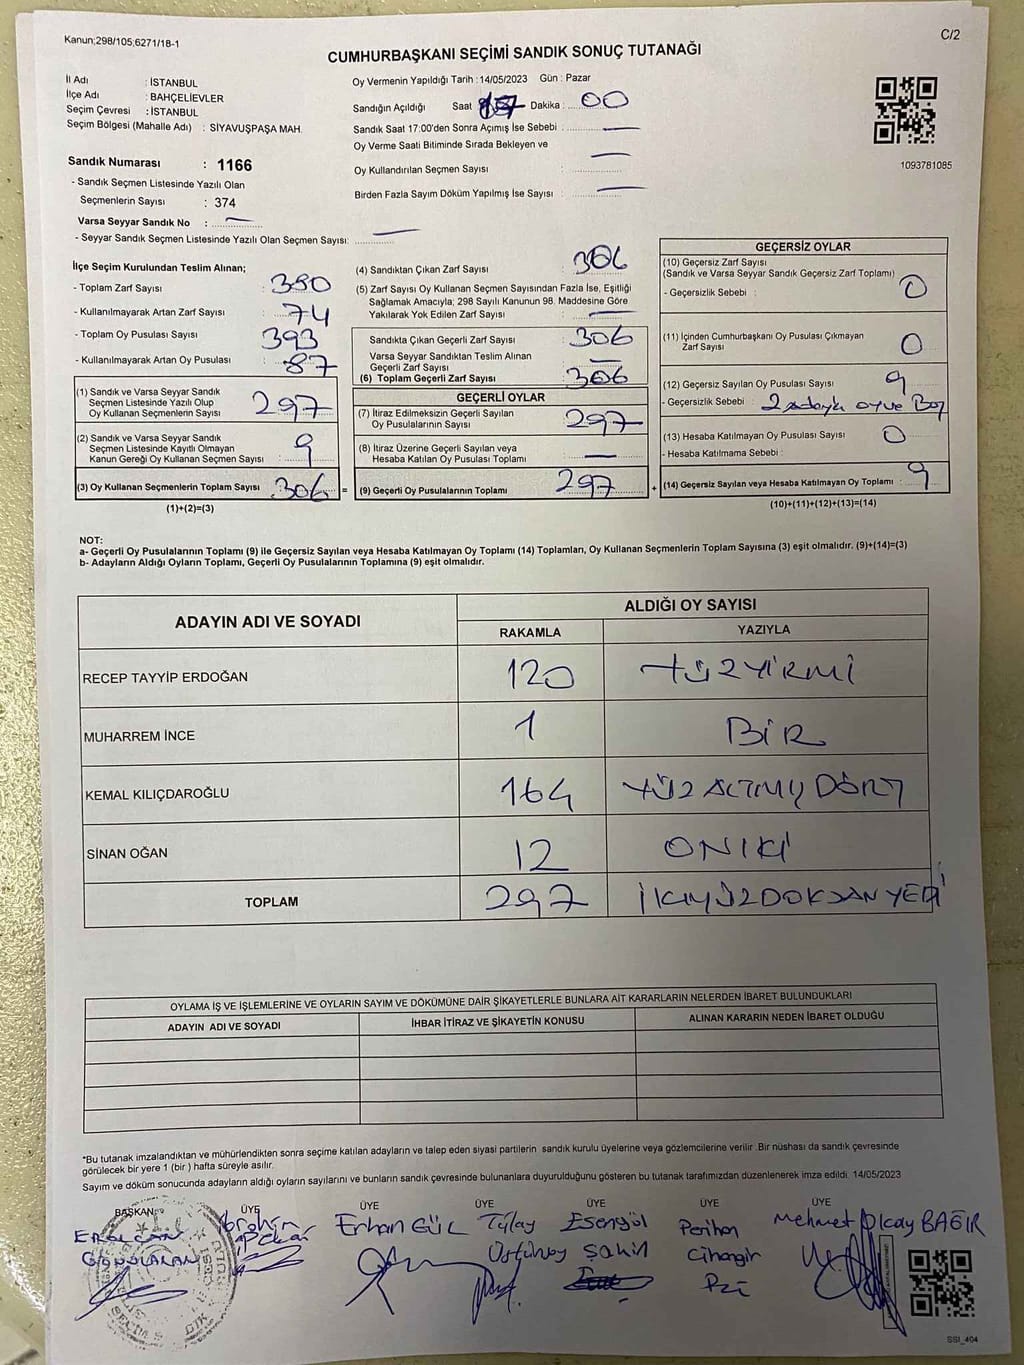 Kanun;298/105;6271/18-1
C/2
CUMHURBAŞKANI SEÇİMİ SANDIK SONUÇ TUTANAĞI
İl Adı : İSTANBUL
İlçe Adı : BAHÇELİEVLER
Seçim Çevresi : İSTANBUL
Seçim Bölgesi (Mahalle Adı) : SİYAVUŞPAŞA MAH.
Sandık Numarası : 1166
- Sandık Seçmen Listesinde Yazılı Olan
Seçmenlerin Sayısı : 374
Varsa Seyyar Sandık No : —
- Seyyar Sandık Seçmen Listesinde Yazılı Olan Seçmen Sayısı: —
Oy Vermenin Yapıldığı Tarih : 14/05/2023 Gün : Pazar
Sandığın Açıldığı Saat 17 Dakika : 00
Sandık Saat 17:00'den Sonra Açımış İse Sebebi : —
Oy Verme Saati Bitiminde Sırada Bekleyen ve
Oy Kullandırılan Seçmen Sayısı : —
Birden Fazla Sayım Döküm Yapılmış İse Sayısı : —
1093781085
İlçe Seçim Kurulundan Teslim Alınan;
- Toplam Zarf Sayısı : 380
- Kullanılmayarak Artan Zarf Sayısı : 74
- Toplam Oy Pusulası Sayısı : 393
- Kullanılmayarak Artan Oy Pusulası : 87
(1) Sandık ve Varsa Seyyar Sandık
Seçmen Listesinde Yazılı Olup
Oy Kullanan Seçmenlerin Sayısı : 297
(2) Sandık ve Varsa Seyyar Sandık
Seçmen Listesinde Kayıtlı Olmayan
Kanun Gereği Oy Kullanan Seçmen Sayısı : 9
(3) Oy Kullanan Seçmenlerin Toplam Sayısı : 306 =
(1)+(2)=(3)
(4) Sandıktan Çıkan Zarf Sayısı : 306
(5) Zarf Sayısı Oy Kullanan Seçmen Sayısından Fazla İse, Eşitliği
Sağlamak Amacıyla; 298 Sayılı Kanunun 98. Maddesine Göre
Yakılarak Yok Edilen Zarf Sayısı : —
Sandıkta Çıkan Geçerli Zarf Sayısı : 306
Varsa Seyyar Sandıktan Teslim Alınan
Geçerli Zarf Sayısı : —
(6) Toplam Geçerli Zarf Sayısı : 306
GEÇERLİ OYLAR
(7) İtiraz Edilmeksizin Geçerli Sayılan
Oy Pusulalarının Sayısı : 297
(8) İtiraz Üzerine Geçerli Sayılan veya
Hesaba Katılan Oy Pusulası Toplamı : —
(9) Geçerli Oy Pusulalarının Toplamı : 297 +
GEÇERSİZ OYLAR
(10) Geçersiz Zarf Sayısı
(Sandık ve Varsa Seyyar Sandık Geçersiz Zarf Toplamı)
- Geçersizlik Sebebi : 0
(11) İçinden Cumhurbaşkanı Oy Pusulası Çıkmayan
Zarf Sayısı : 0
(12) Geçersiz Sayılan Oy Pusulası Sayısı : 9
- Geçersizlik Sebebi : 2 adaya oy ve Boş
(13) Hesaba Katılmayan Oy Pusulası Sayısı : 0
- Hesaba Katılmama Sebebi :
(14) Geçersiz Sayılan veya Hesaba Katılmayan Oy Toplamı : 9
(10)+(11)+(12)+(13)=(14)
NOT:
a- Geçerli Oy Pusulalarının Toplamı (9) ile Geçersiz Sayılan veya Hesaba Katılmayan Oy Toplamı (14) Toplamları, Oy Kullanan Seçmenlerin Toplam Sayısına (3) eşit olmalıdır. (9)+(14)=(3)
b- Adayların Aldığı Oyların Toplamı, Geçerli Oy Pusulalarının Toplamına (9) eşit olmalıdır.
ADAYIN ADI VE SOYADI
ALDIĞI OY SAYISI
RAKAMLA YAZIYLA
RECEP TAYYİP ERDOĞAN 120 YÜZYİRMİ
MUHARREM İNCE 1 BİR
KEMAL KILIÇDAROĞLU 164 YÜZALTMIŞ DÖRT
SİNAN OĞAN 12 ONİKİ
TOPLAM 297 İKİYÜZDOKSANYEDİ
OYLAMA İŞ VE İŞLEMLERİNE VE OYLARIN SAYIM VE DÖKÜMÜNE DAİR ŞİKAYETLERLE BUNLARA AİT KARARLARIN NELERDEN İBARET BULUNDUKLARI
ADAYIN ADI VE SOYADI İHBAR İTİRAZ VE ŞİKAYETİN KONUSU ALINAN KARARIN NEDEN İBARET OLDUĞU
*Bu tutanak imzalandıktan ve mühürlendikten sonra seçime katılan adayların ve talep eden siyasi partilerin sandık kurulu üyelerine veya gözlemcilerine verilir .Bir nüshası da sandık çevresinde
görülecek bir yere 1 (bir ) hafta süreyle asılır.
Sayım ve döküm sonucunda adayların aldığı oyların sayılarını ve bunların sandık çevresinde bulunanlara duyurulduğunu gösteren bu tutanak tarafımızdan düzenlenerek imza edildi. 14/05/2023
BAŞKAN ÜYE ÜYE ÜYE ÜYE ÜYE ÜYE
ERALCAN İbrahim Erhan GÜL Tülay Esengül Perihan Mehmet Olcay BAĞIR
Üstünsoy Şahin Cihangir
SSI_404